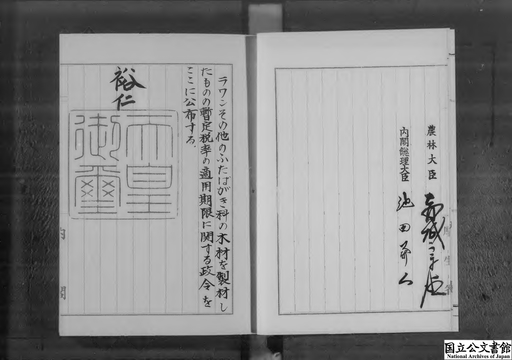 農林大臣
赤城宗徳
内閣総理大臣
池田勇人
ラワンその他のふたばがき科の木材を製材し
たものの暫定税率の適用期限に関する政令を
ここに公布する。
裕仁
天皇
御璽
内閣
国立公文書館
National Archives of Japan